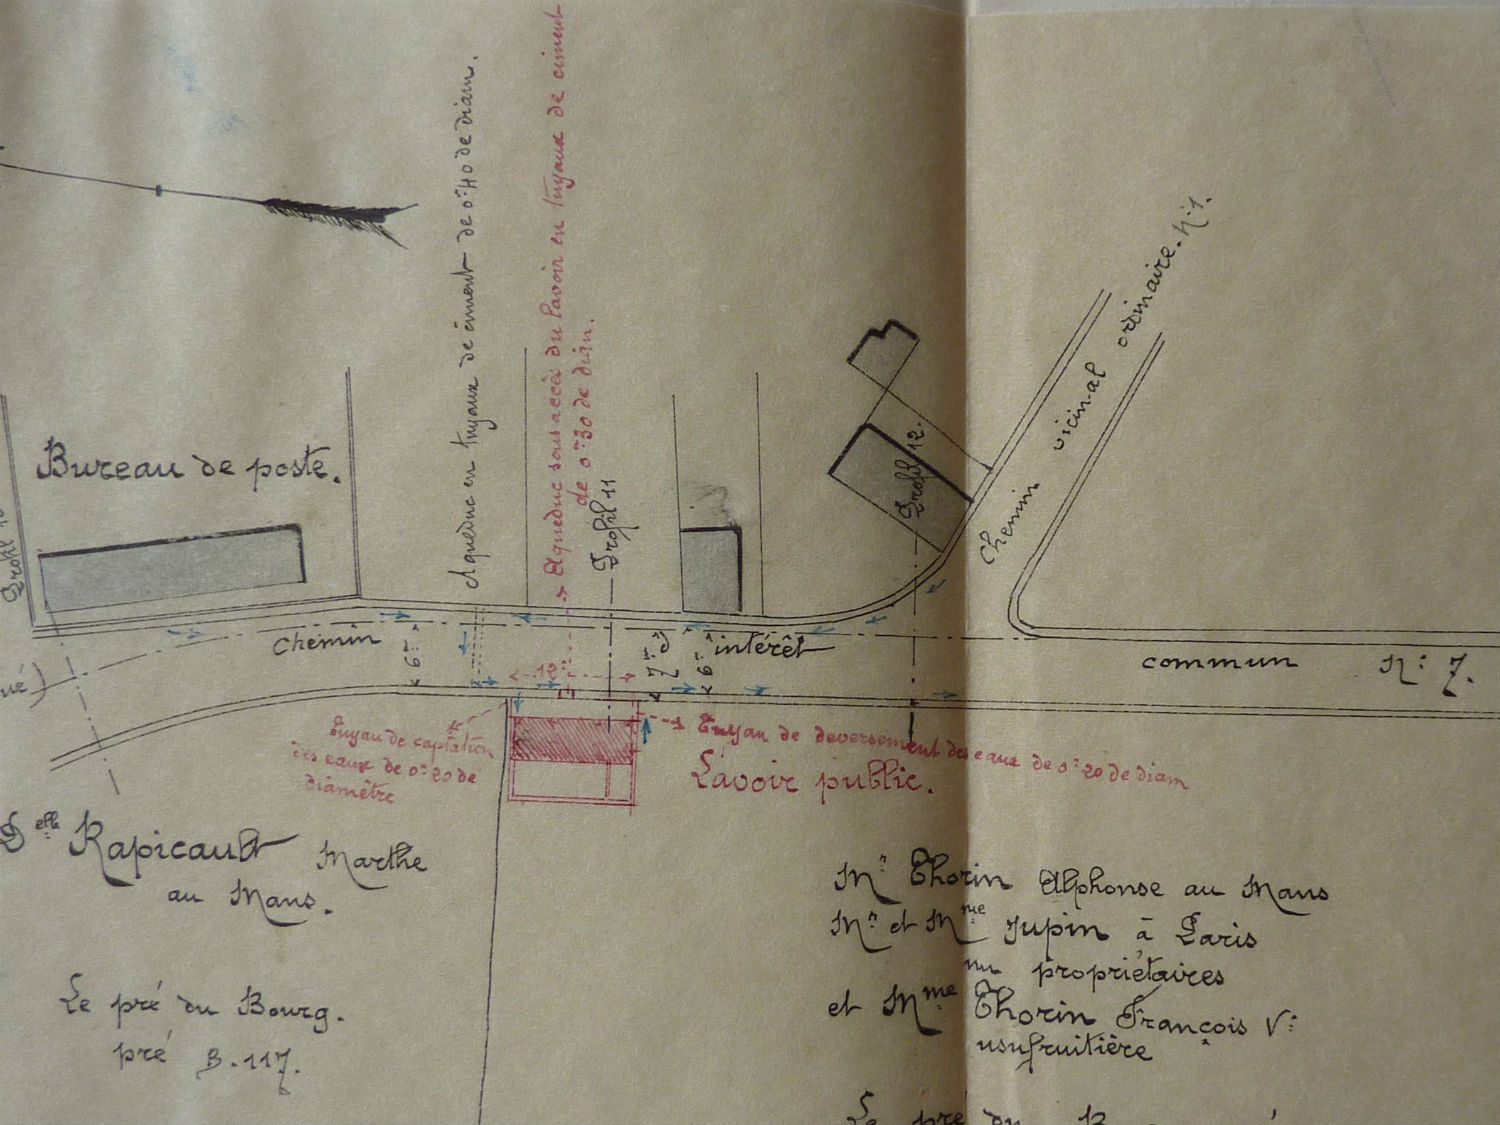 Aqueduc en tuyaux de ciment de 0m40 de diam.
Aqueduc sous accès du lavoir en tuyaux de ciment
de 0m30 de diam.
Bureau de poste.
Profil 11
Profil 12.
Chemin vicinal ordinaire. N:1.
Chemin
6m
12m
7m
6m
d'intérêt
commun N: 7.
Tuyau de captation
des eaux de 0m20 de
diamètre
Tuyau de deversement des eaux de 0m20 de diam
Lavoir public.
Delle Rapicault Marthe
au Mans.
Le pré du Bourg.
pré B.117.
Mr Thorin Alphonse au Mans
Mr et Mme Jupin à Paris
nu propriétaires
et Mme Thorin François Ve
usufruitière
Le pré du